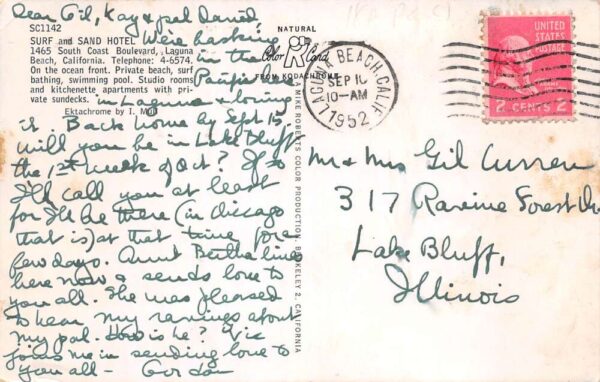 Dear Gil, Kay & pal David,
SC1142
SURF and SAND HOTEL
1465 South Coast Boulevard, Laguna
Beach, California. Telephone: 4-6574.
On the ocean front. Private beach, surf
bathing, swimming pool. Studio rooms
and kitchenette apartments with pri-
vate sundecks.
Ektachrome by I.
We're basking
in the
Pacific here
in Laguna & loving
it. Back home by Sept 15
will you be in Lake Bluff
the 1st week of Oct? If so
I'll call you at least
for I'll be there (in Chicago
that is) at that time for a
few days. Aunt Bertha lives
here now & sends love to
you all. She was pleased
to hear my ravings about
my pal. How is he? Vic
joins me in sending love to
you all —
NATURAL
Color Card
FROM KODACHROME
MIKE ROBERTS COLOR PRODUCTION, BERKELEY 2, CALIFORNIA
LAGUNA BEACH, CALIF.
SEP 10
10-AM
1952
UNITED
STATES
POSTAGE
2 CENTS 2
Mr & Mrs Gil Curren
317 Ravine Forest Dr
Lake Bluff,
Illinois